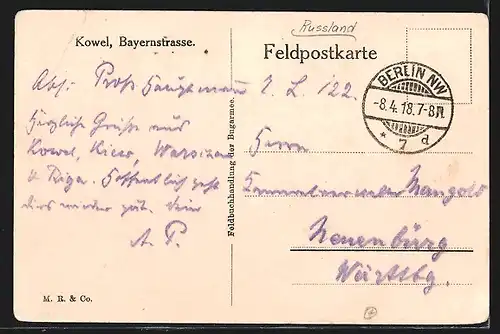 Russland
Kowel, Bayernstrasse.
Feldpostkarte
BERLIN NW
-8.4.18.7-8N
* 7 d
Abs: Prof. Hauptmann L. 122.
Herzliche Grüße aus
Kowel, Kiew, Warschau
& Riga. Hoffentlich geht
dies wieder gut. Dein
A. P.
Feldbuchhandlung der Bugarmee.
Herrn
Mangold
Neuenbürg
Württbg.
M. R. & Co.